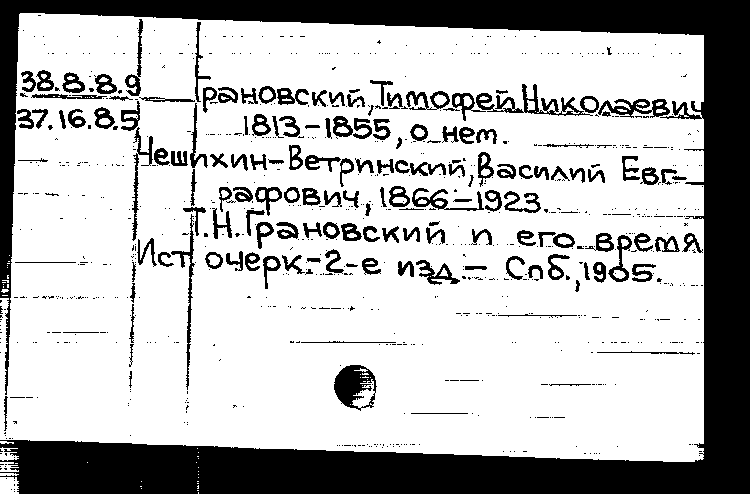 38.8.8.9
37.16.8.5
Грановский, Тимофей Николаевич
1813-1855, о нем.
Чешихин-Ветринский, Василий Евг-
рафович, 1866-1923.
Т.Н.Грановский и его время
Ист очерк.-2-е изд.- Спб., 1905.